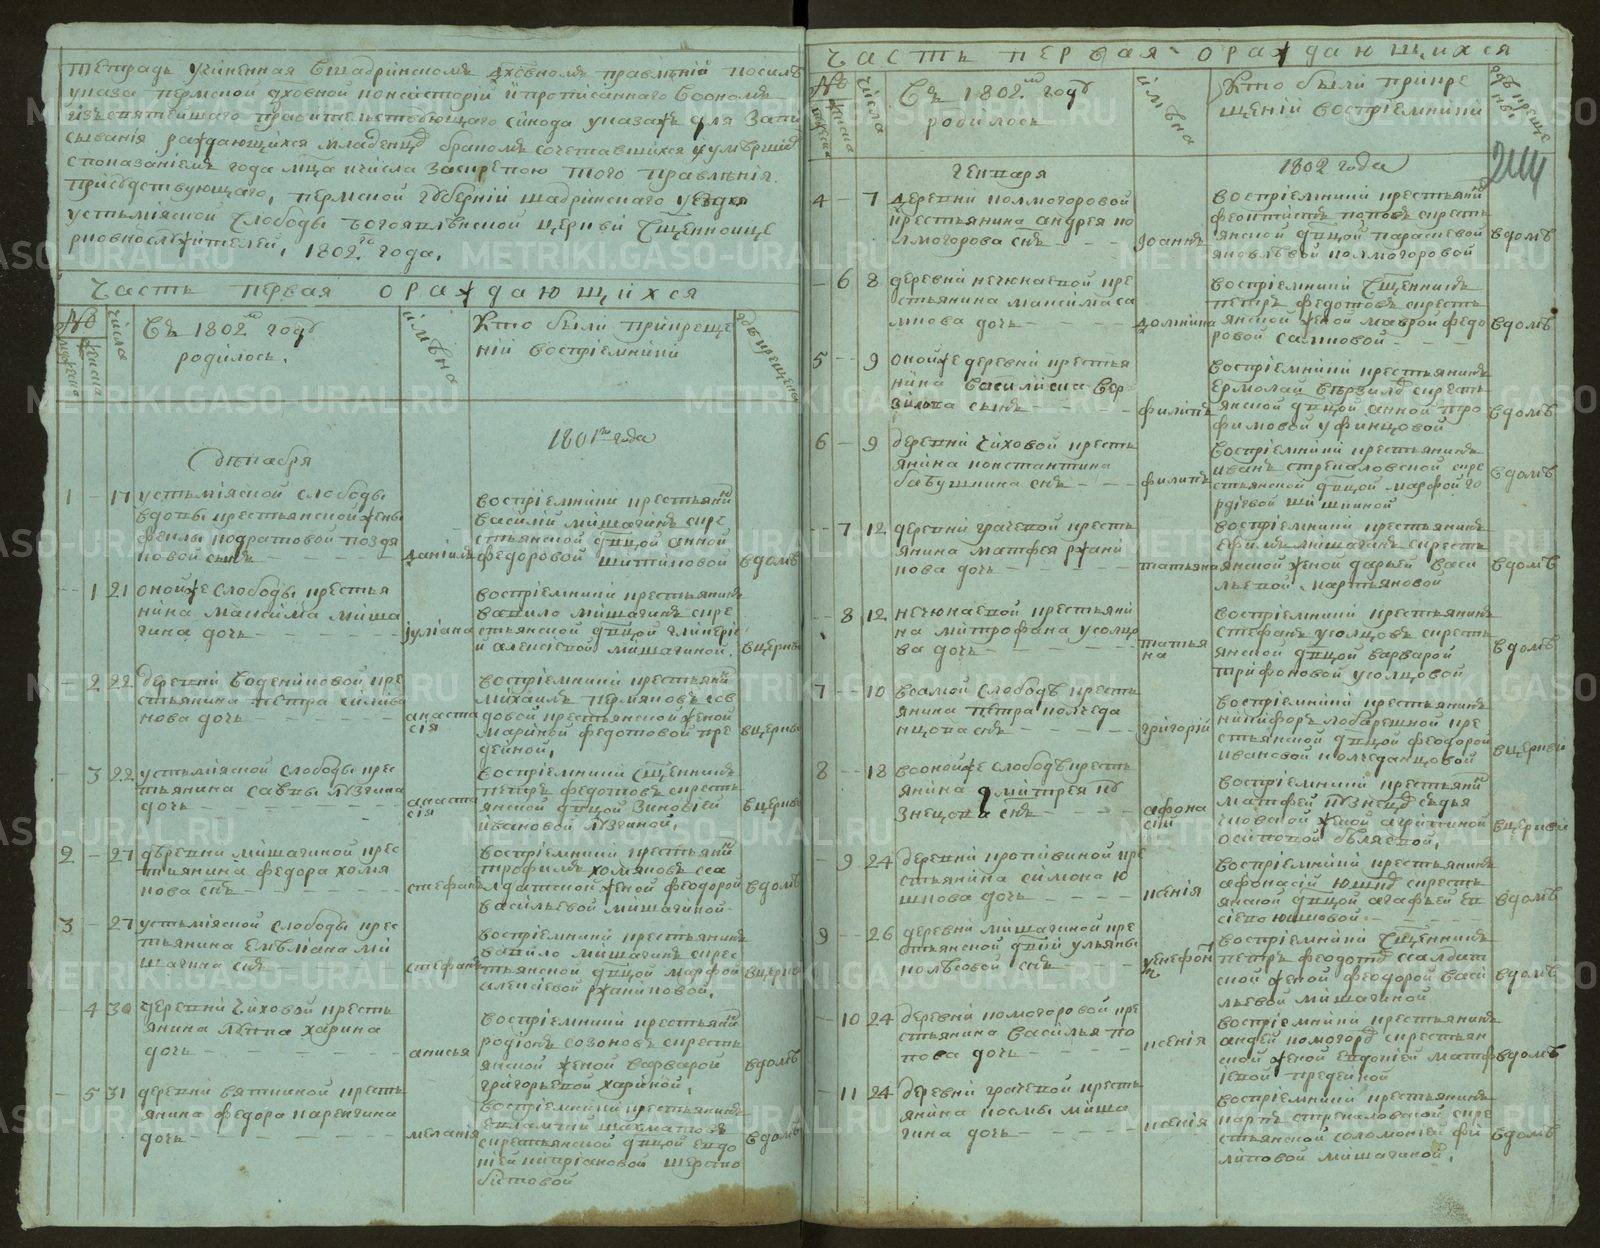 тетрадь учиненная вшадринскомъ духовномъ правлении посилѣ
указа пермской духовной консистории и прописаннаго воономъ
изъ святейшаго правительствующаго синода указа для запи
сывания рождающихся младенцовъ бракомъ сочетавшихся и умерших
споказаниемъ года мца и числа заскрепою того правления
присудствующаго, пермской губернии шадринскаго уезда
устьмиясской слободы богоявленской церкви священноце
рковнослужителей, 1802го года.
часть первая о раждающихся
№
числа
Въ 1802м году
родилось.
имѣна
Кто были прикреще
нии восприемники
гдѣ крещены
1801го года
декабря
1 - 17 устьмияской слободы
вдовы крестьянской жены
феклы кодратовой поздя
новой сынъ
даниилъ
восприемники крестьяни
василий мишагинъ скре
стьянской дѣвцой анной
федоровой шитиковой
вдомѣ
- 1 21 оной же слободы крестья
нина максима миша
гина дочь
иулиана
восприемники крестьянинъ
вавило мишагинъ скре
стьянской дѣвцой гликерi
и алексiевой мишагиной.
вцерквѣ
- 2 22 деревни водениковой кре
стьянина петра силива
нова дочь
анаста
сiя
восприемники крестьяни
михаилъ пермяковъ сов
довой крестьянской женой
мариной федотовой пре
деиной,
вцерквѣ
- 3 22 устьмияской слободы крес
тьянина савы лузгина
дочь
анаста
сiя
восприемники сщенникъ
петръ федотовъ скресть
янской дѣвцой зиновiей
ивановой лузгиной.
вцерквѣ
2 - 27 деревни мишагиной крес
тьянина федора хомя
кова снъ
стефанъ
восприемники крестьяни
трофимъ хомяковъ сса
лдатской женой феодорой
васильевой мишагиной
вдомѣ
3 - 27 устьмияской слободы крес
тьянина емелiана ми
шагина снъ
стефанъ
восприемники крестьянинъ
вавило мишагинъ скрес
тьянской дѣвцой марфой
алексiевой ржаниковой.
вцерквѣ
- 4 30 деревни чиховой кресть
янина лукпа харина
дочь
анисья
восприемники крестьяни
родiонъ созоновъ скресть
янской женой варварой
григорьевой хариной.
вдомѣ
- 5 31 деревни вяткиной кресть
янина федора каренгина
дочь
меланiя
восприемники крестьянинъ
евлампий шахматовъ
скрестьянской дѣвцой евдо
кiей киприановой шерсто
битовой
вдомѣ
часть первая о раждающихся
№
числа
Въ 1802м году
родилось
имѣна
Кто были прикре
щении восприемники
гдѣ креще
ны
214
генваря
1802 года
4 - 7 деревни колмогоровой
крестьянина андрея ко
лмогорова снъ
iоаннъ
восприемники крестьяни
феоктистъ поповъ скресть
янской дѣвцой парасковой
яковлѣвой колмогоровой
вдомѣ
- 6 8 деревни нечюнаевой кре
стьянина максима са
мкова дочь
домника
восприемники сщенникъ
петръ федотовъ скресть
янской женой маврой федо
ровой самковой
вдомѣ
5 - - 9 оной же деревни крестья
нина василиска вер
зилова сынъ
филипъ
восприемники крестьянинъ
ермолай верзиловъ скресть
янской дѣвцой анной тро
фимовой уфинцовой
вдомѣ
6 - 9 деревни чиховой кресть
янина константина
бабушкина снъ
филипъ
восприемники крестьянинъ
иванъ стрекаловской скре
стьянской дѣвцой марфой го
рдѣевой шишкиной
вдомѣ
- - 7 12 деревни грачевой кресть
янина матфея ржани
кова дочь
татьяна
восприемники крестьянинъ
ефимъ мишагинъ скресть
янской женой дарьей васи
льевой мартьяновой
вдомѣ
- 8 12 нечюнаевой крестьяни
на митрофана усолцо
ва дочь
татья
на
восприемники крестьянинъ
стефанъ усолцовъ скресть
янской дѣвцой варварой
трифоновой усолцовой
вдомѣ
7 - - 10 всамой слободѣ кресть
янина петра колчеда
нцова снъ
григорий
восприемники крестьянинъ
никифоръ лобарешной кре
стьянской дѣвцой феодорой
ивановой колчеданцовой
вцерквѣ
8 - - 18 вооной же слободѣ кресть
янина дмитрея ку
знецова снъ
афона
сий
восприемники крестьяни
матфей кузнецовъ сьдья
чковской женой агрипиной
осиповой бѣляевой,
вцерквѣ
- 9 24 деревни кропивиной кре
стьянина симона ю
шкова дочь
ксенiя
восприемники крестьянинъ
афонасий юшковъ скресть
янской дѣвцой агафьей ев
сiево юшковой
вдомѣ
9 - - 26 деревни мишагиной кре
стьянской дѣвки ульяны
колѣсовой снъ
ксенофон
тъ
восприемники сщенникъ
петръ феодотовъ ссалдат
ской женой феодорой васи
льевой мишагиной
вдомѣ
- 10 24 деревни комогоровой кре
стьянина василья по
пова дочь
ксенiя
восприемники крестьянинъ
андей комогоровъ скрестьян
ской женой евдокией матф
iевой предеиной
вдомѣ
- 11 24 деревни грачевой кресть
янина косьмы миша
гина дочь
ксенiя
восприемники крестьянинъ
карпъ стрекаловской скре
стьянской соломонiей фи
липовой мишагиной.
вдомѣ
METRIKI.GASO-URAL.RU